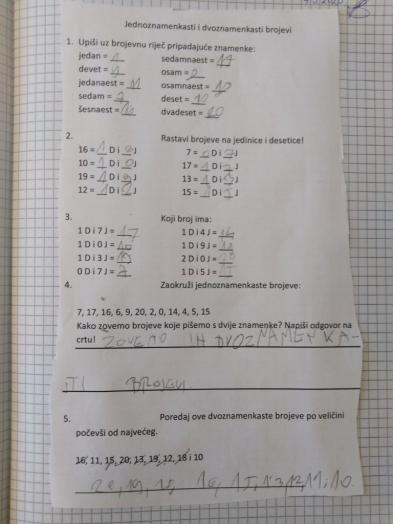 Jednoznamenkasti i dvoznamenkasti brojevi
1. Upiši uz brojevnu riječ pripadajuće znamenke:
jedan = 1 sedamnaest = 17
devet = osam =
jedanaest = 11 osamnaest =
sedam = 7 deset = 10
šesnaest = dvadeset = 20
2. Rastavi brojeve na jedinice i desetice!
16 = 1 D i J 7 = D i J
10 = 1 D i J 17 = 1 D i J
19 = 1 D i J 13 = 1 D i J
12 = 1 D i J 15 = 1 D i J
3. Koji broj ima:
1 D i 7 J = 17 1 D i 4 J =
1 D i 0 J = 10 1 D i 9 J =
1 D i 3 J = 2 D i 0 J =
0 D i 7 J = 7 1 D i 5 J =
4. Zaokruži jednoznamenkaste brojeve:
7, 17, 16, 6, 9, 20, 2, 0, 14, 4, 5, 15
Kako zovemo brojeve koje pišemo s dvije znamenke? Napiši odgovor na
crtu! ZOVEMO IH DVOZNAMENKA-
STI BROJEVI
5. Poredaj ove dvoznamenkaste brojeve po veličini
počevši od najvećeg.
16, 11, 15, 20, 13, 19, 12, 18 i 10
20, 19, 18, 16, 15, 13, 12, 11, 10.